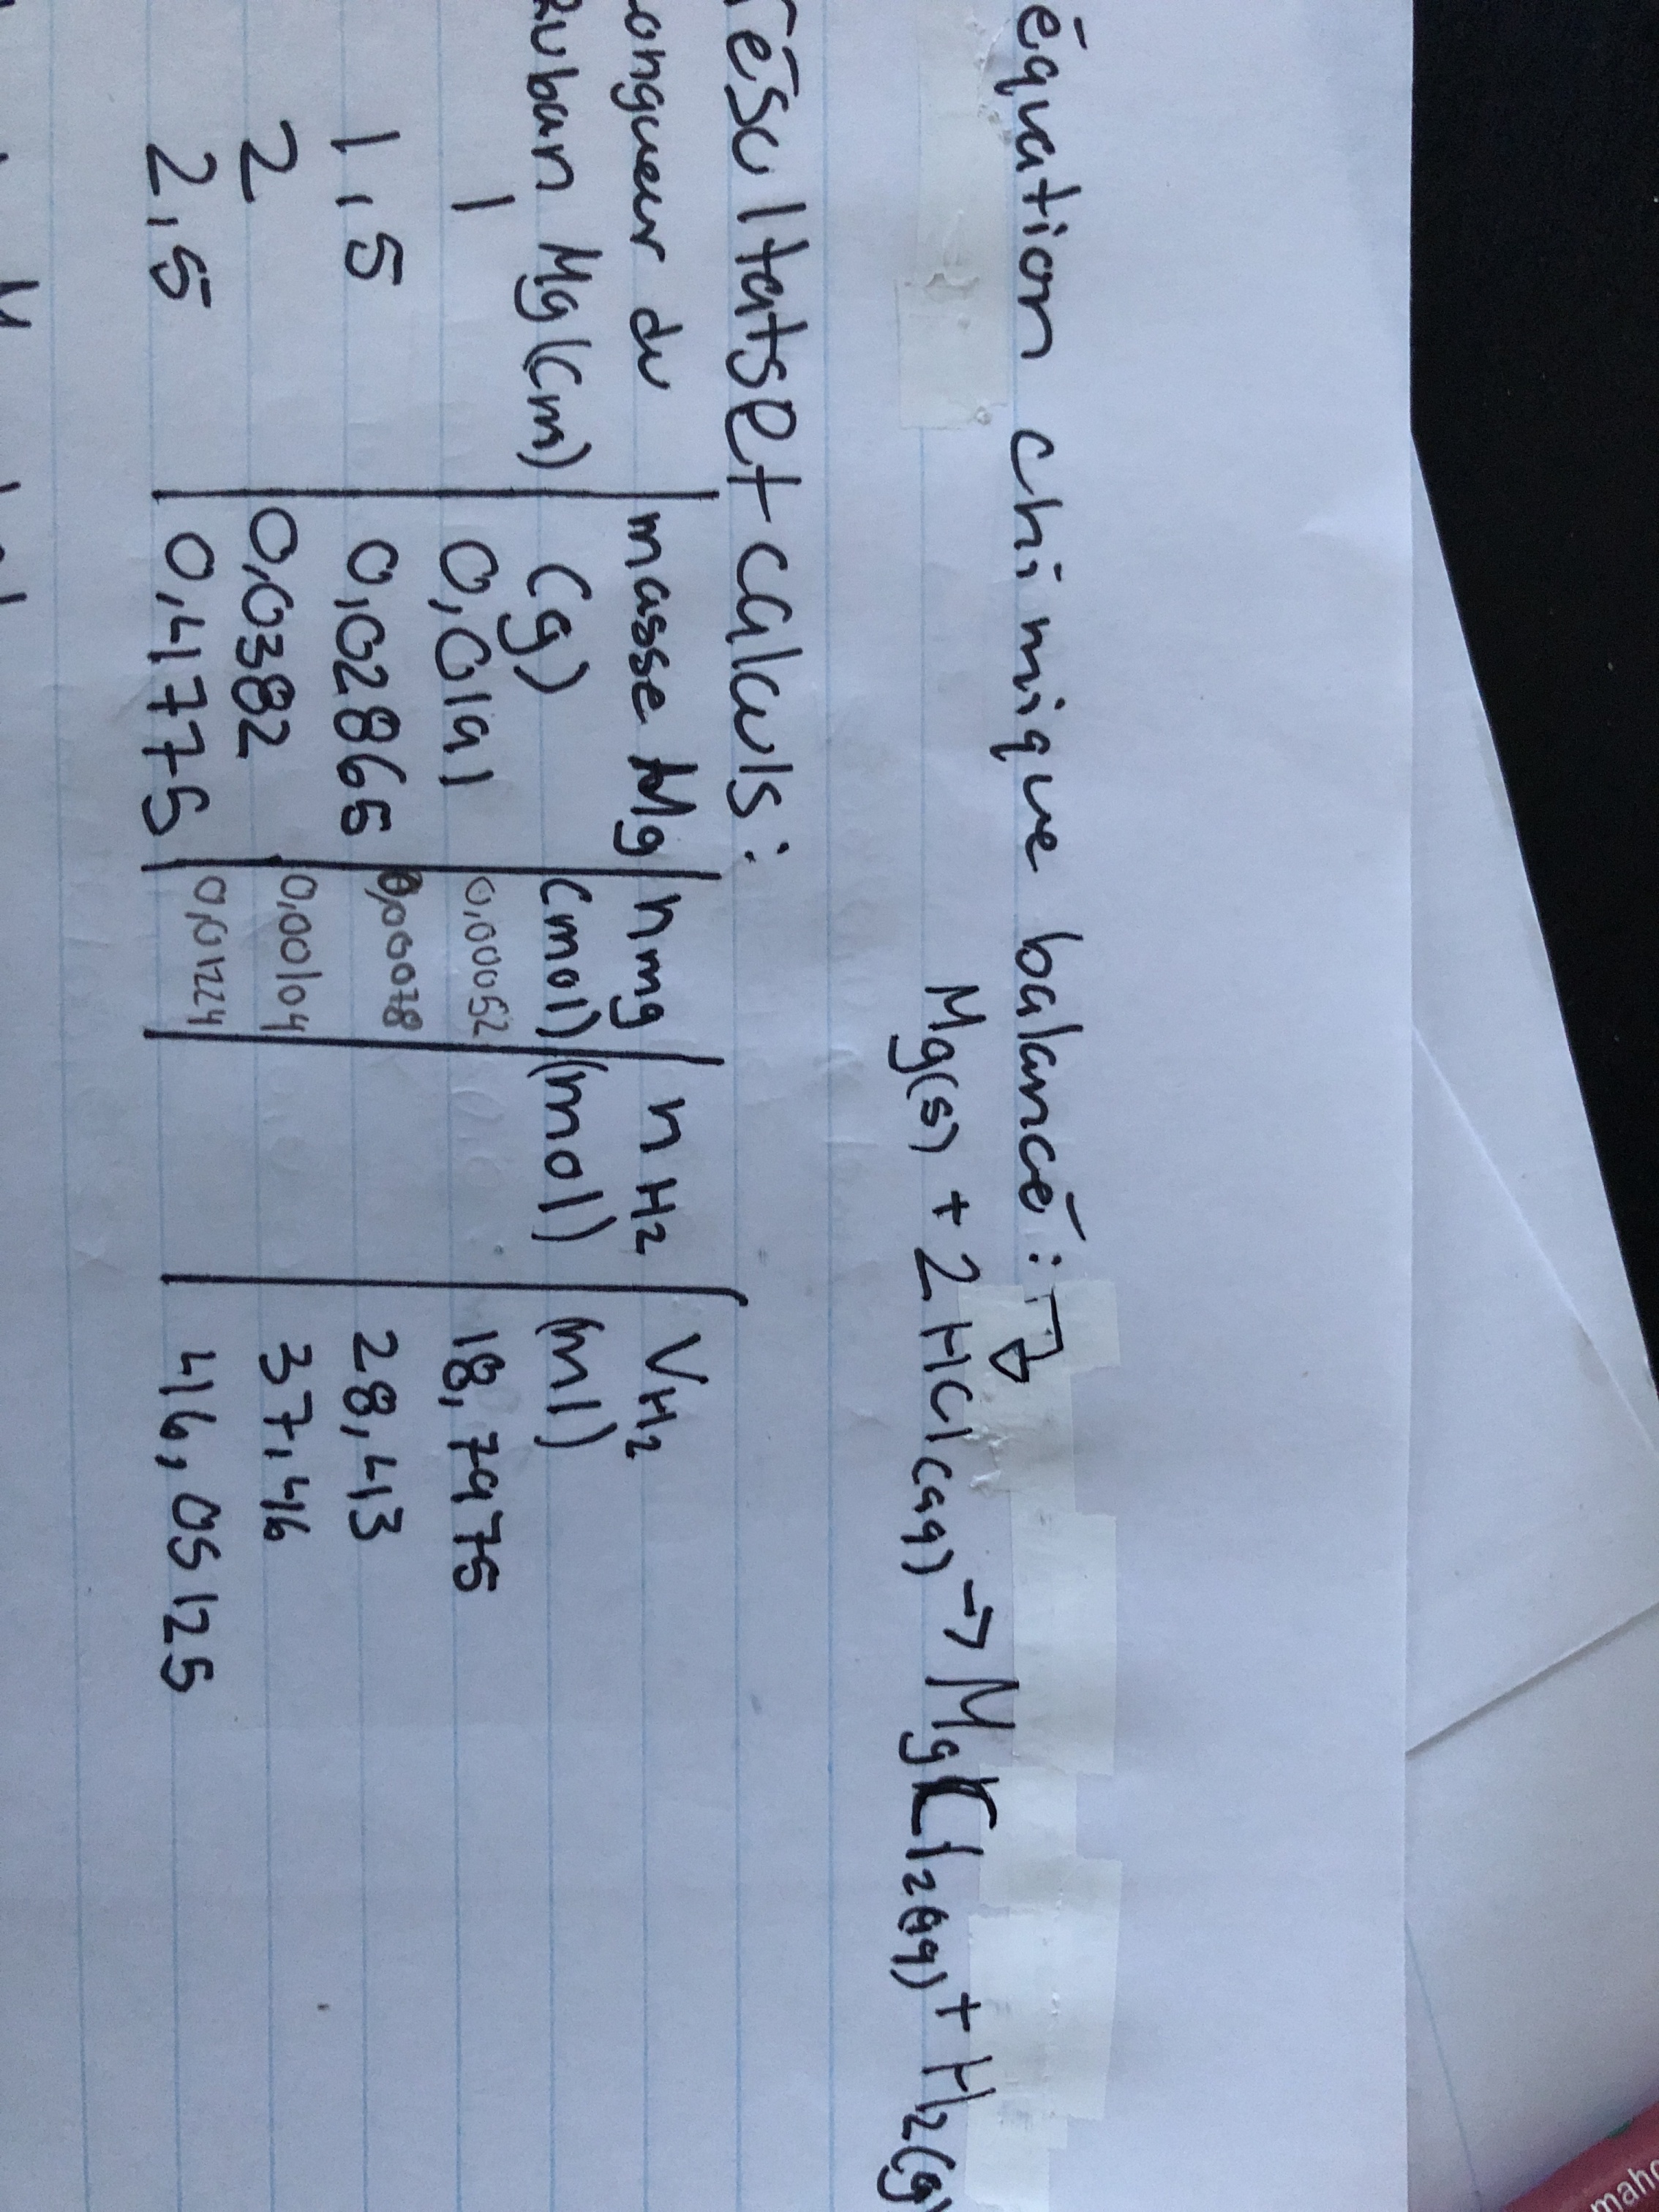 équation chimique balancé:
Mg(s) + 2 HCl(aq) → MgCl2(aq) + H2(g)
résultats et calculs:
longueur du | masse Mg | nmg | n H2 | VH2
Ruban Mg (cm) | (g) | (mol) | (mol) | (ml)
1 0,0191 0,00052 18,7975
1,5 0,02865 0,00078 28,43
2 0,0382 0,00104 37,46
2,5 0,4775 0,01224 46,05125